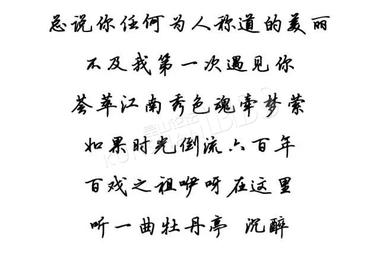 总说你任何为人称道的美丽
不及我第一次遇见你
荟萃江南秀色魂牵梦萦
如果时光倒流六百年
百戏之祖咿呀在这里
听一曲牡丹亭 沉醉